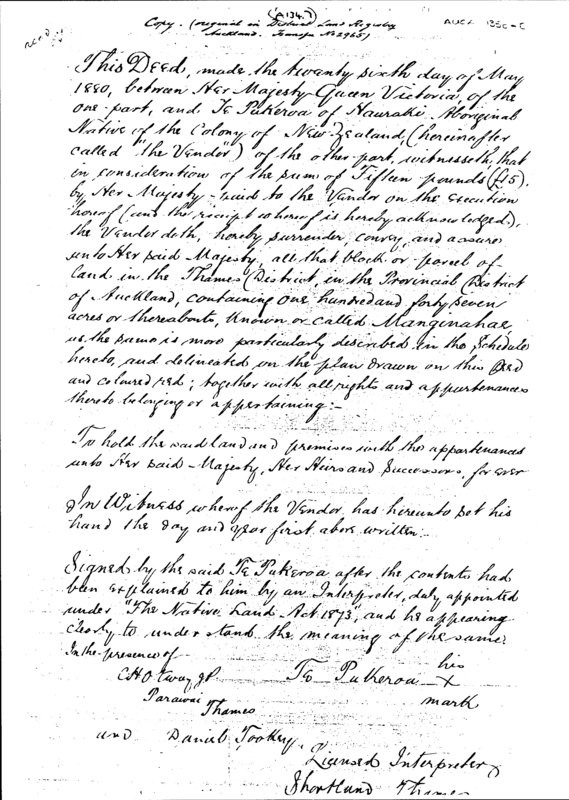 (A134.)
Copy. (original in District Land Registry
Auckland. Transfer No 2965)
AUCK 1350-C
This Deed, made the twenty sixth day of May
1880, between Her Majesty Queen Victoria, of the
one part, and Te Pukeroa of Hauraki Aboriginal
Native of the Colony of New Zealand, (hereinafter
called "the Vendor") of the other part, witnesseth, that
in consideration of the sum of Fifteen pounds (£15),
by Her Majesty paid to the Vendor on the execution
hereof (and the receipt whereof is hereby acknowledged),
the Vendor doth, hereby surrender, convey, and assure
unto Her said Majesty, all that block or parcel of
land in the Thames District, in the Provincial District
of Auckland, containing one hundred and forty seven
acres or thereabouts, known or called Manginahae,
as the same is more particularly described in the Schedule
hereto, and delineated on the plan drawn on this Deed
and coloured red; together with all rights and appurtenances
thereto belonging or appertaining:-
To hold the said land and premises with the appurtenances
unto Her said Majesty, Her Heirs and Successors, for ever
In Witness whereof the Vendor has hereunto set his
hand the day and year first above written.
Signed by the said Te Pukeroa after the contents had
been explained to him by an Interpreter, duly appointed
under "The Native Land Act 1873", and he appearing
clearly to understand the meaning of the same
In the presence of
his
Te Pukeroa X
mark
Parawai
Thames
and Daniel Tookey,
Licensed Interpreter
Shortland Thames